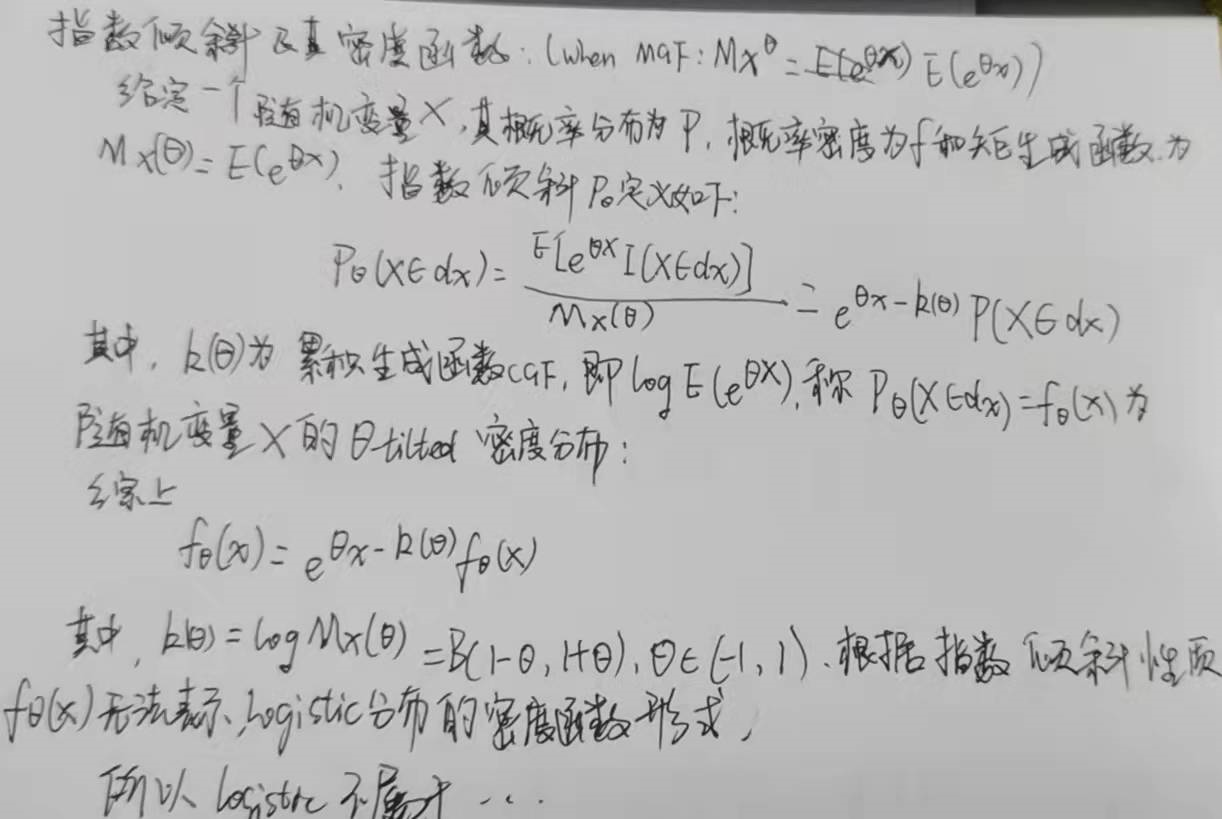 指数倾斜及其密度函数:(when MGF: Mx^θ = E(e^θx) E(e^θx))
给定一个随机变量X,其概率分布为P,概率密度为f和矩生成函数为
Mx(θ)=E(e^θx). 指数倾斜Pθ定义如下:
Pθ(X∈dx)= E[e^θX I(X∈dx)] / Mx(θ) = e^θx-k(θ) P(X∈dx)
其中,k(θ)为累积生成函数CGF,即log E(e^θX),称Pθ(X∈dx)=fθ(x)为
随机变量X的θ-tilted密度分布:
综上
fθ(x)= e^θx-k(θ) fθ(x)
其中,k(θ)=log Mx(θ)=B(1-θ,1+θ),θ∈(-1,1).根据指数倾斜性质
fθ(x)无法表示、Logistic分布的密度函数形式,
所以Logistic不属于...